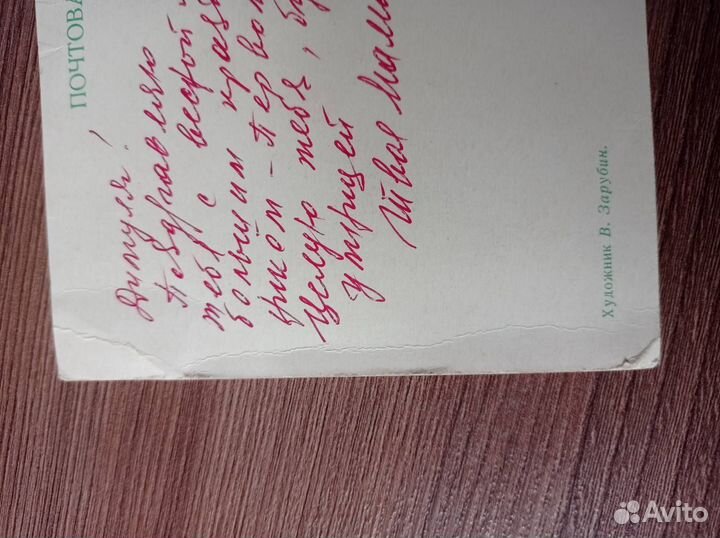 ПОЧТОВА
Дитуля!
Поздравляю
тебя с весной
большим празд
ником - Первом
Целую тебя, бу
умницей
Твоя Мам
Художник В. Зарубин.
Avito